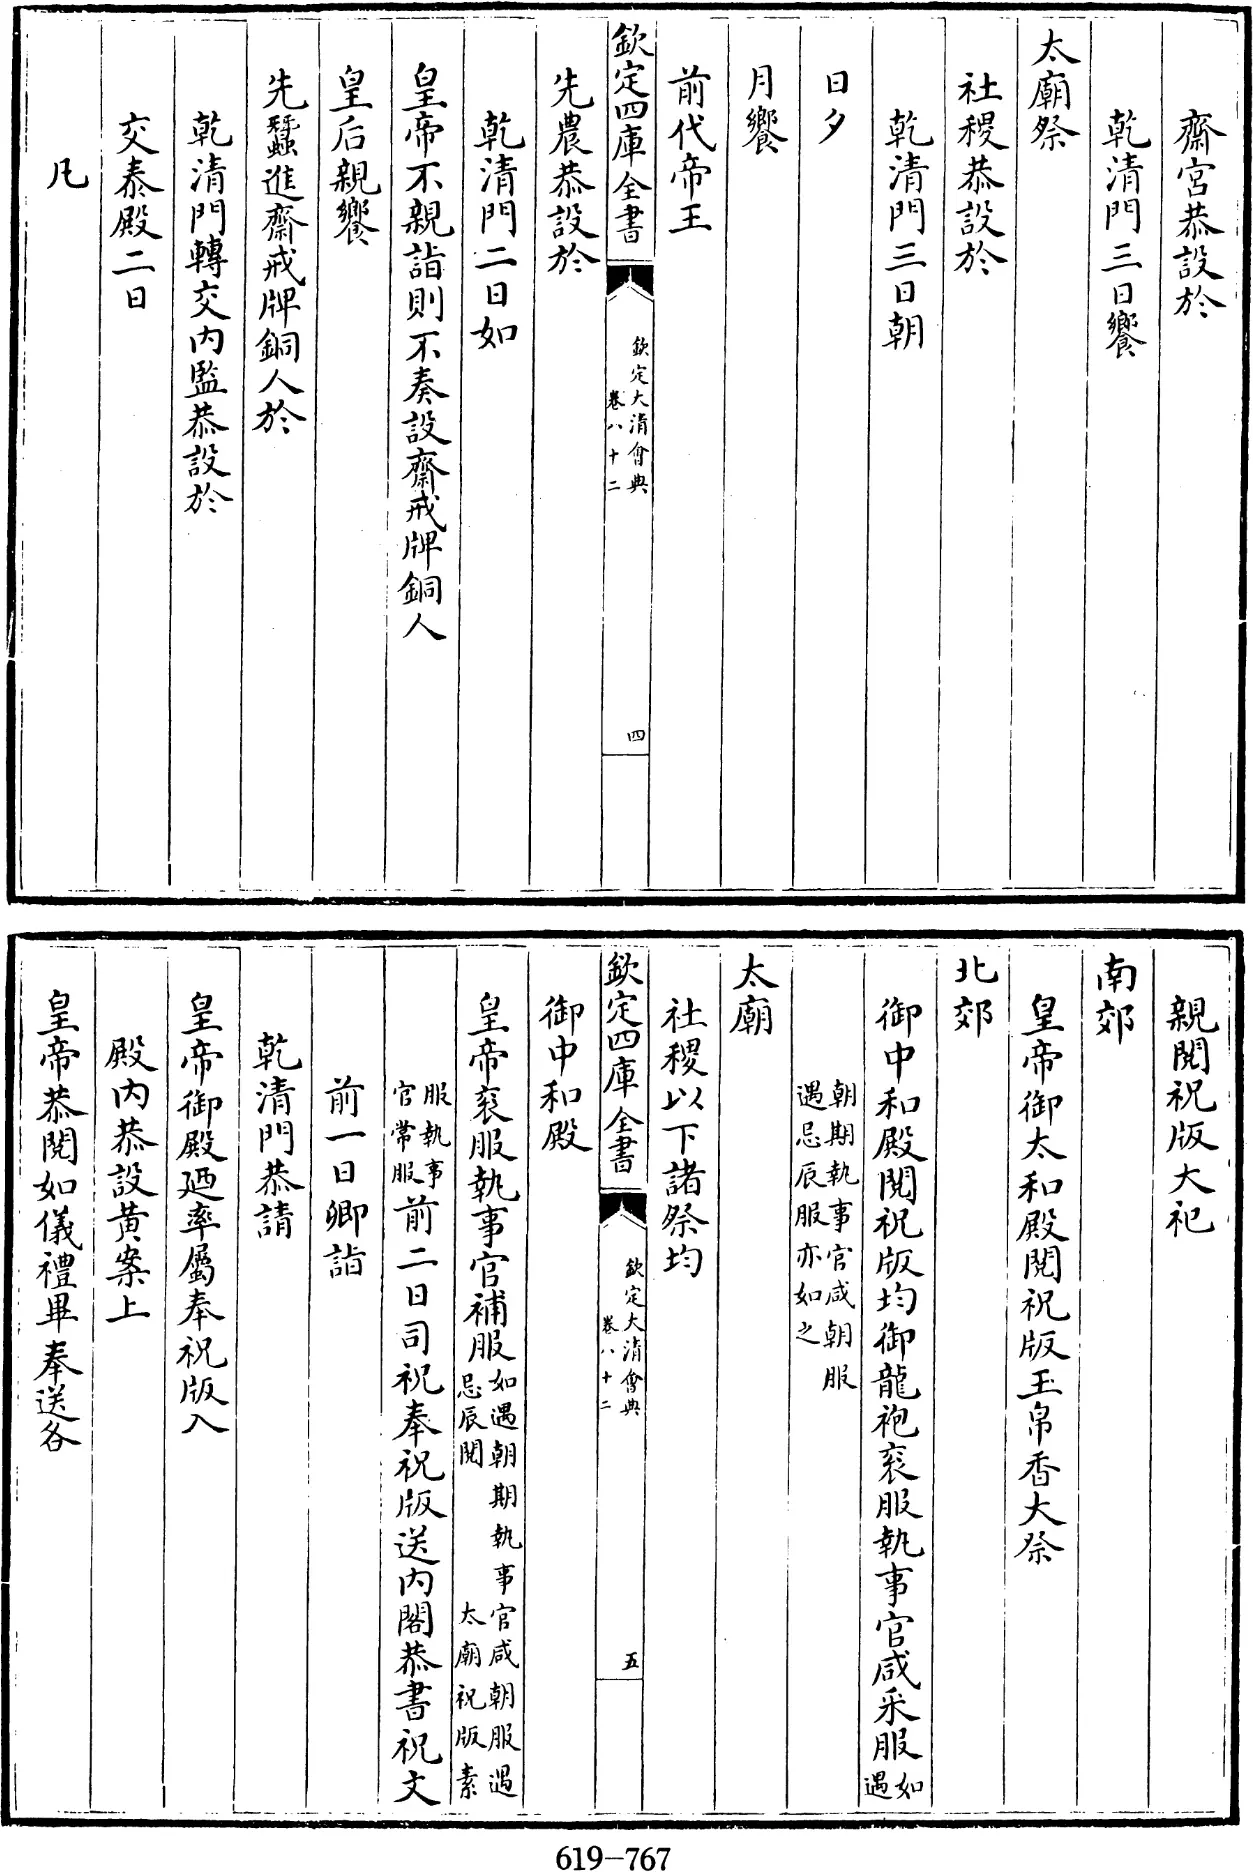 齋宮恭設於
乾清門三日饗
太廟祭
社稷恭設於
乾清門三日朝
日夕
月饗
前代帝王
欽定四庫全書
欽定大清會典
卷八十二
四
先農恭設於
乾清門二日如
皇帝不親詣則不奏設齋戒牌銅人
皇后親饗
先蠶進齋戒牌銅人於
乾清門轉交内監恭設於
交泰殿二日
凡
親閱祝版大祀
南郊
皇帝御太和殿閱祝版玉帛香大祭
北郊
御中和殿閱祝版均御龍袍衮服執事官咸采服如遇
朝期執事官咸朝服
遇忌辰服亦如之
太廟
社稷以下諸祭均
欽定四庫全書
欽定大清會典
卷八十二
五
御中和殿
皇帝衮服執事官補服如遇朝期執事官咸朝服遇忌辰閱太廟祝版素
服執事官常服前二日司祝奉祝版送内閣恭書祝文
前一日卿詣
乾清門恭請
皇帝御殿廼率屬奉祝版入
殿内恭設黄案上
皇帝恭閱如儀禮畢奉送各
619-767